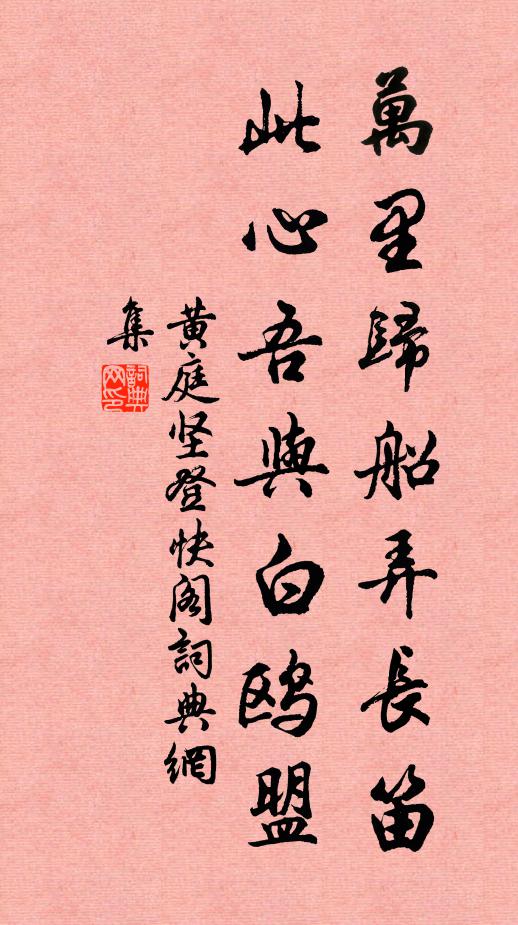 萬里歸船弄長笛
此心吾與白鸥盟
黄庭坚登快阁詞典網
集
詞典
网印